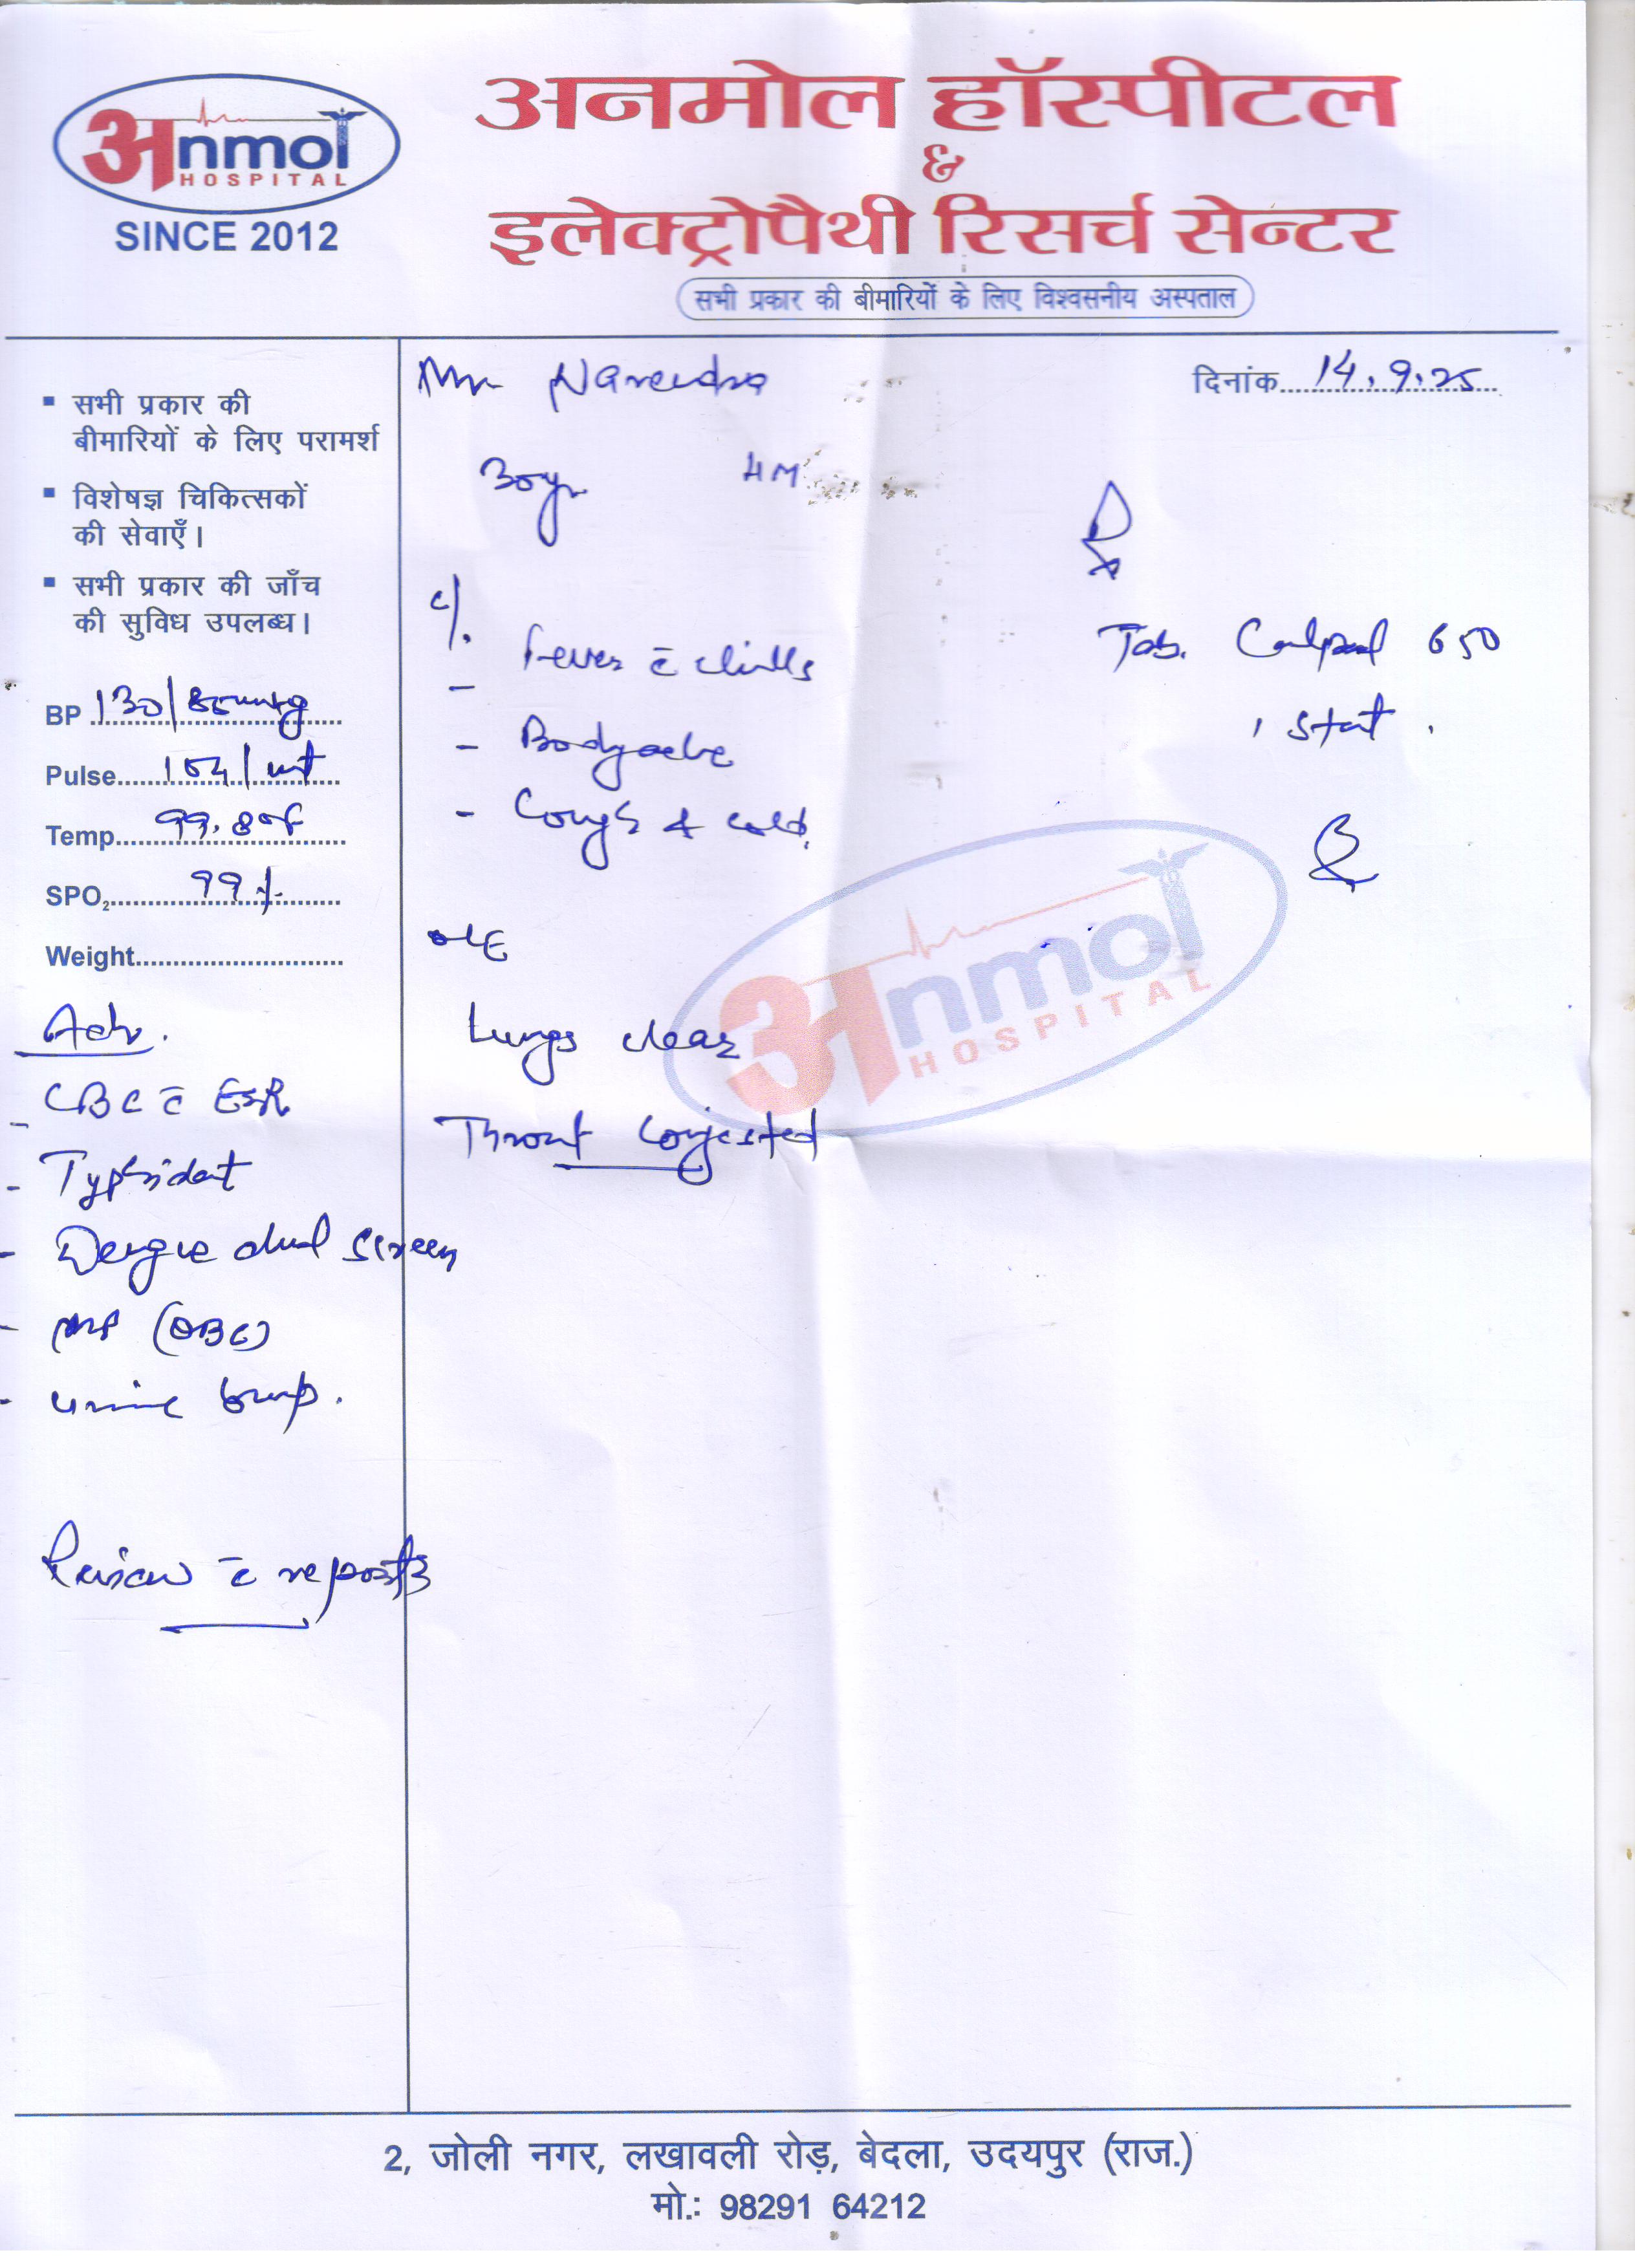 अnmol
HOSPITAL
SINCE 2012
अनमोल हॉस्पीटल
&
इलेक्ट्रोपैथी रिसर्च सेन्टर
सभी प्रकार की बीमारियों के लिए विश्वसनीय अस्पताल
दिनांक 14.9.25
Mr Narendra
30yr
▪ सभी प्रकार की
बीमारियों के लिए परामर्श
▪ विशेषज्ञ चिकित्सकों
की सेवाएँ।
▪ सभी प्रकार की जाँच
की सुविध उपलब्ध।
BP 130/80mmHg
Pulse 104/mt
Temp 99.8°F
SPO₂ 99%
Weight
Adv.
- CBC c̄ ESR
- Typhidot
- Dengue dual screen
- MP (QBC)
- urine comp.
Review c̄ reports
c/o
- Fever c̄ chills
- Bodyache
- Cough & cold
O/E
Lungs clear
Throat congested
Rx
Tab. Calpol 650
1 stat.
अnmol
HOSPITAL
2, जोली नगर, लखावली रोड़, बेदला, उदयपुर (राज.)
मो.: 98291 64212